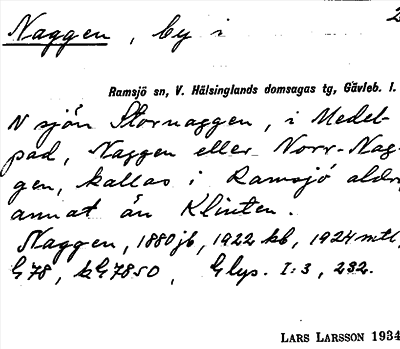 2
Naggen, by i
Ramsjö sn, V. Hälsinglands domsagas tg, Gävleb. l.
N sjön Stornaggen, i Medel-
pad, Naggen eller Norr-Nag-
gen, kallas i Ramsjö aldr
annat än Klinten.
Naggen, 1880 jb, 1922 kb, 1924 mtl,
G78, kG7850, Glys. I:3, 232.
LARS LARSSON 1934